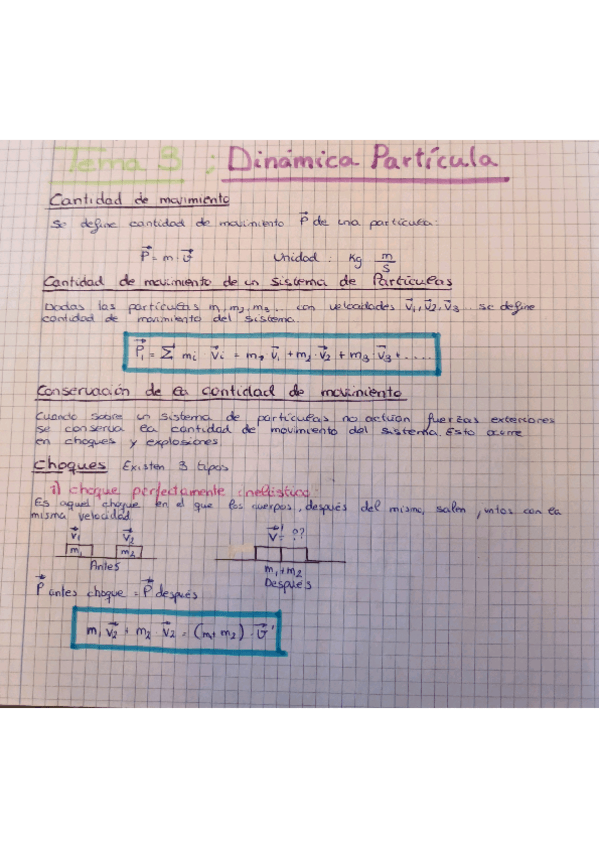 Tema 3 : Dinámica Partícula
Cantidad de movimiento
Se define cantidad de movimiento P⃗ de una partícula:
P⃗ = m · v⃗ Unidad : Kg m/s
Cantidad de movimiento de un sistema de Partículas
Dadas las partículas m₁, m₂, m₃... con velocidades v⃗₁, v⃗₂, v⃗₃... se define
cantidad de movimiento del sistema.
P⃗₁ = Σ mᵢ · v⃗ᵢ = m₁ v⃗₁ + m₂ · v⃗₂ + m₃ · v⃗₃ + .....
Conservación de la cantidad de movimiento
Cuando sobre un sistema de partículas no actúan fuerzas exteriores
se conserva la cantidad de movimiento del sistema. Esto ocurre
en choques y explosiones.
Choques Existen 3 tipos
1) choque perfectamente inelástico:
Es aquel choque en el que los cuerpos, después del mismo, salen juntos con la
misma velocidad.
v⃗₁ v⃗₂ v⃗' = ??
m₁ m₂
Antes m₁+m₂
Después
P⃗ antes choque = P⃗ después
m₁ v⃗₂ + m₂ · v⃗₂ = (m₁ m₂) · v⃗'